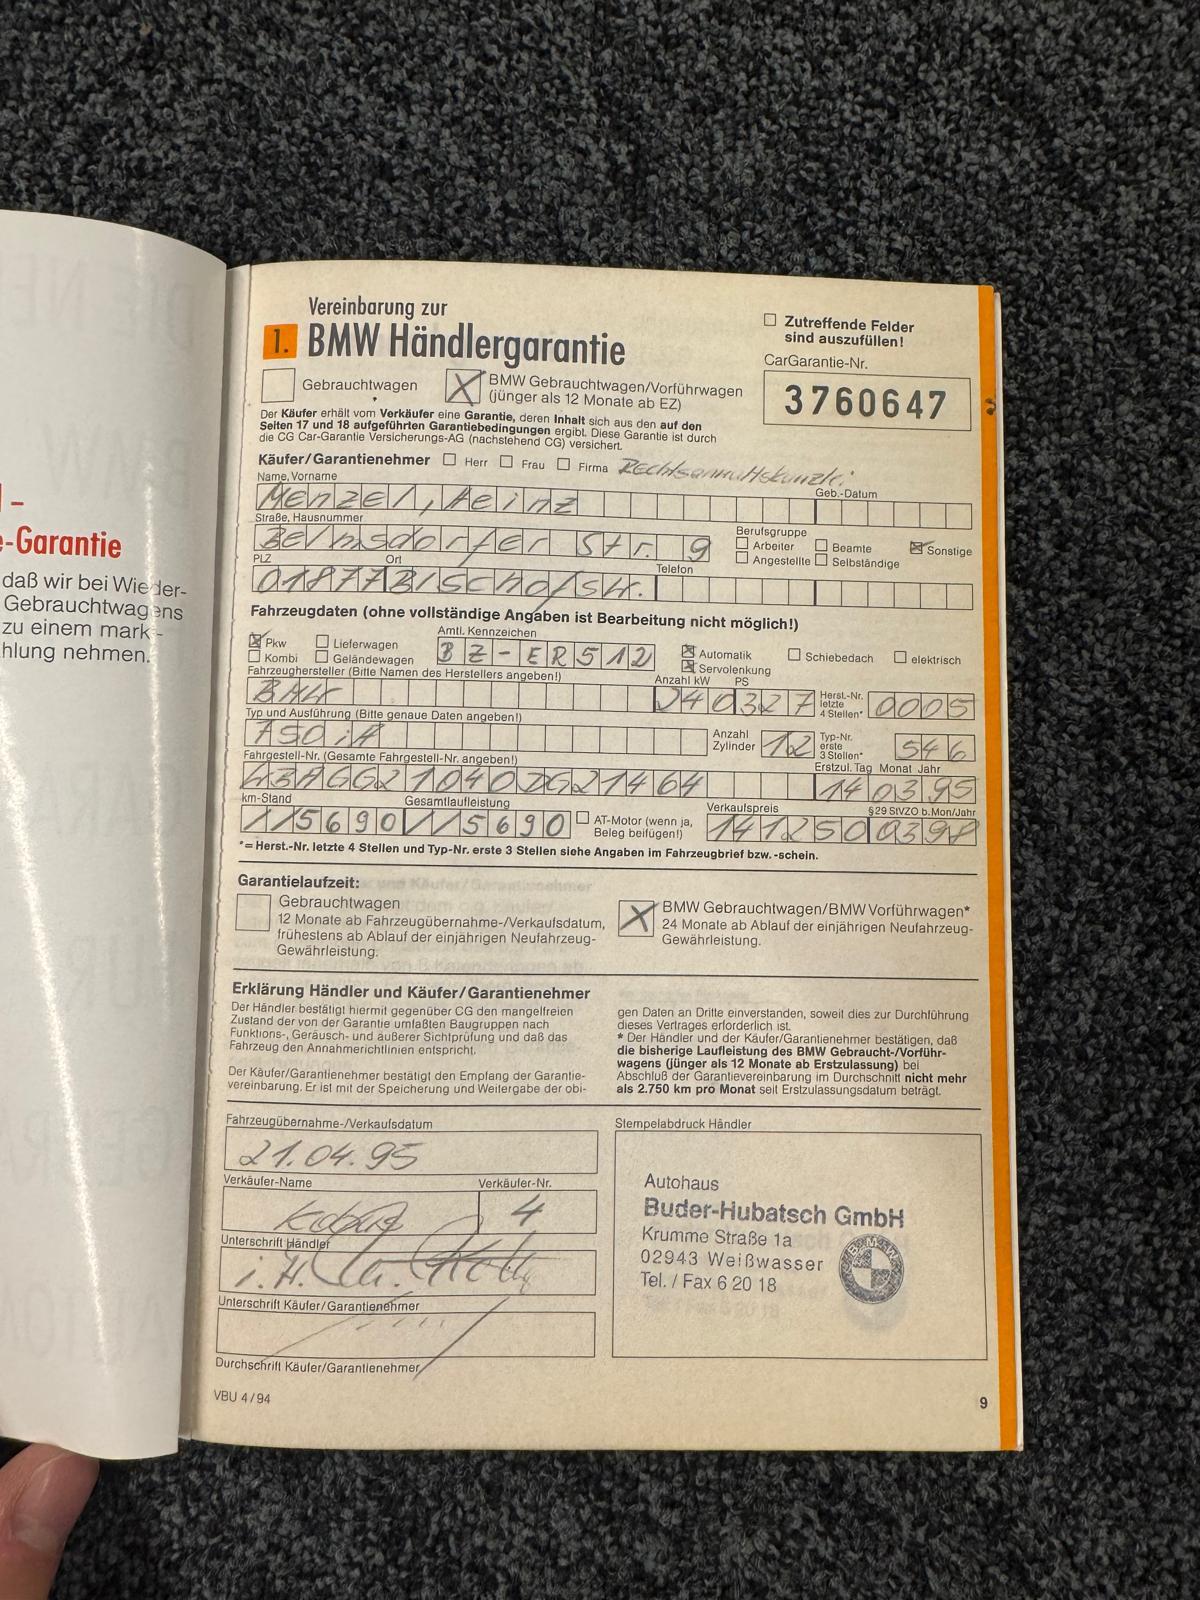 -
e-Garantie
daß wir bei Wieder-
Gebrauchtwagens
zu einem mark-
hlung nehmen.
Vereinbarung zur
1. BMW Händlergarantie
Zutreffende Felder
sind auszufüllen!
CarGarantie-Nr.
3760647
Gebrauchtwagen
BMW Gebrauchtwagen/Vorführwagen
(jünger als 12 Monate ab EZ)
Der Käufer erhält vom Verkäufer eine Garantie, deren Inhalt sich aus den auf den
Seiten 17 und 18 aufgeführten Garantiebedingungen ergibt. Diese Garantie ist durch
die CG Car-Garantie Versicherungs-AG (nachstehend CG) versichert.
Käufer/Garantienehmer Herr Frau Firma Rechtsanwaltskanzlei
Name, Vorname Geb.-Datum
Menzel, Heinz
Straße, Hausnummer Berufsgruppe
Belmsdorfer Str. 9
Arbeiter Beamte Sonstige
Angestellte Selbständige
PLZ Ort Telefon
01877 Bischofsw.
Fahrzeugdaten (ohne vollständige Angaben ist Bearbeitung nicht möglich!)
Pkw Lieferwagen Amtl. Kennzeichen
Kombi Geländewagen BZ-ER512
Automatik Schiebedach elektrisch
Servolenkung
Fahrzeughersteller (Bitte Namen des Herstellers angeben!) Anzahl kW PS
BMW 240 327
Herst.-Nr. letzte 4 Stellen* 0005
Typ und Ausführung (Bitte genaue Daten angeben!)
750iA
Anzahl Zylinder 12
Typ-Nr. erste 3 Stellen* 546
Fahrgestell-Nr. (Gesamte Fahrgestell-Nr. angeben!) Erstzul. Tag Monat Jahr
WBAGG21040DG21464 14 03 95
km-Stand Gesamtlaufleistung
//5690 //5690
AT-Motor (wenn ja,
Beleg beifügen!)
Verkaufspreis §29 StVZO b. Mon/Jahr
141250 0398
*= Herst.-Nr. letzte 4 Stellen und Typ-Nr. erste 3 Stellen siehe Angaben im Fahrzeugbrief bzw. -schein.
Garantielaufzeit:
Gebrauchtwagen
12 Monate ab Fahrzeugübernahme-/Verkaufsdatum,
frühestens ab Ablauf der einjährigen Neufahrzeug-
Gewährleistung.
BMW Gebrauchtwagen/BMW Vorführwagen*
24 Monate ab Ablauf der einjährigen Neufahrzeug-
Gewährleistung.
Erklärung Händler und Käufer/Garantienehmer
Der Händler bestätigt hiermit gegenüber CG den mangelfreien
Zustand der von der Garantie umfaßten Baugruppen nach
Funktions-, Geräusch- und äußerer Sichtprüfung und daß das
Fahrzeug den Annahmerichtlinien entspricht.
Der Käufer/Garantienehmer bestätigt den Empfang der Garantie-
vereinbarung. Er ist mit der Speicherung und Weitergabe der obi-
gen Daten an Dritte einverstanden, soweit dies zur Durchführung
dieses Vertrages erforderlich ist.
* Der Händler und der Käufer/Garantienehmer bestätigen, daß
die bisherige Laufleistung des BMW Gebraucht-/Vorführ-
wagens (jünger als 12 Monate ab Erstzulassung) bei
Abschluß der Garantievereinbarung im Durchschnitt nicht mehr
als 2.750 km pro Monat seit Erstzulassungsdatum beträgt.
Fahrzeugübernahme-/Verkaufsdatum
21.04.95
Verkäufer-Name Verkäufer-Nr.
4
Unterschrift Händler
i.A.
Unterschrift Käufer/Garantienehmer
Durchschrift Käufer/Garantienehmer
Stempelabdruck Händler
Autohaus
Buder-Hubatsch GmbH
Krumme Straße 1a
02943 Weißwasser
Tel. / Fax 6 20 18
BMW
VBU 4/94
9